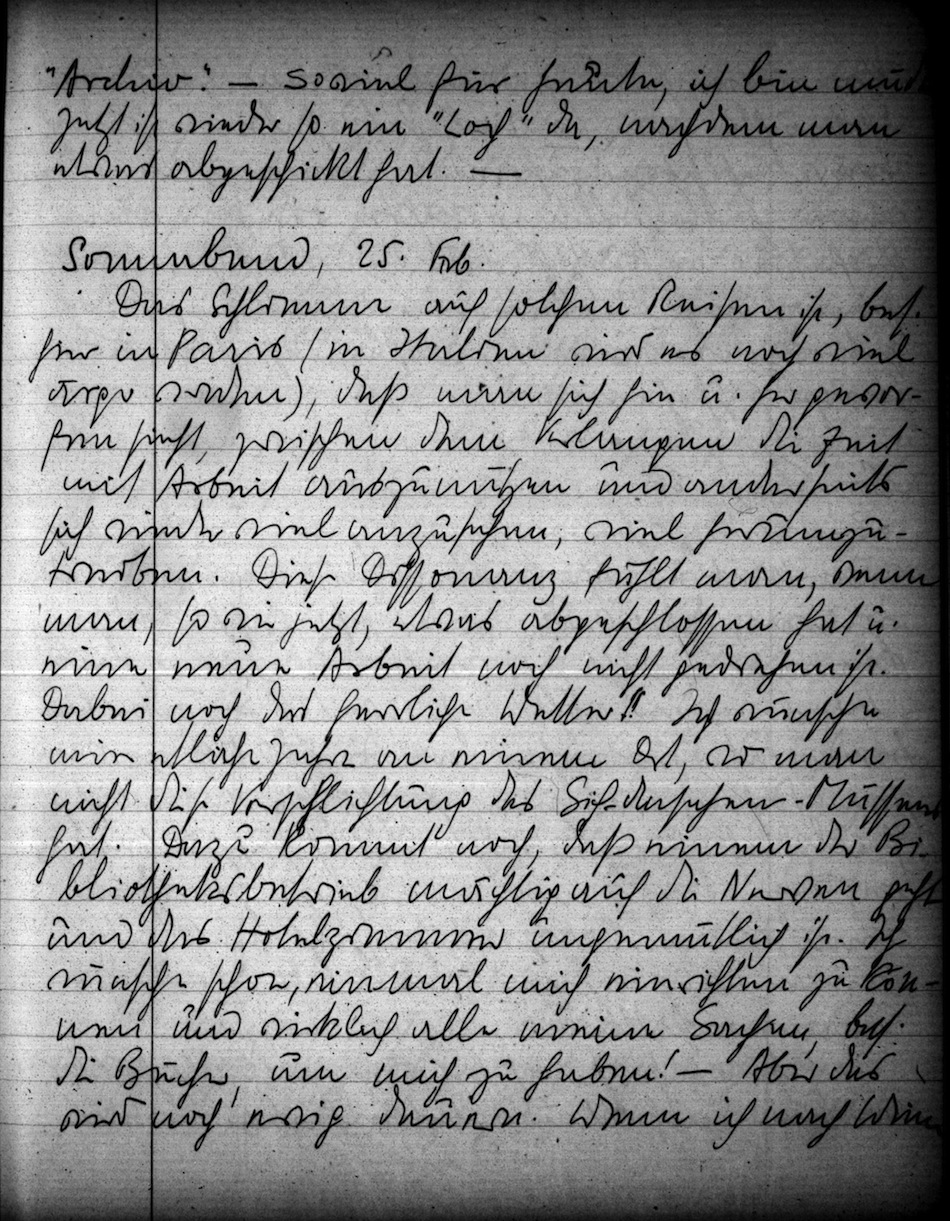 "Archiv". — Soviel für heute, ich bin müde
Jetzt ist wieder so ein "Loch" da, nachdem man
etwas abgeschickt hat. —
Sonnabend, 25. Feb.
Das Schlimme auf solchen Reisen ist, bes.
hier in Paris (in Italien wird es noch viel
ärger werden), daß man sich hin u. her gewor-
fen sieht, zwischen dem Verlangen die Zeit
mit Arbeit auszunützen und anderseits
sich wieder viel anzusehen, viel herumzu-
treiben. Diese Dissonanz fühlt man, wenn
man, so wie jetzt, etwas abgeschlossen hat u.
eine neue Arbeit noch nicht gediehen ist.
Dabei noch das herrliche Wetter!! Ich wünsche
mir etliche Jahre an einem Ort, wo man
nicht diese Verpflichtung des Sich-ansehen-Müssens
hat. Dazu kommt noch, daß einem der Bi-
bliotheksbetrieb mächtig auf die Nerven geht
und das Hotelzimmer ungemütlich ist. Ich
wünsche schon, einmal mich einrichten zu kön-
nen und wirklich alle meine Sachen, bes.
die Bücher, um mich zu haben! — Aber das
wird noch ewig dauern. Wenn ich nach Wien